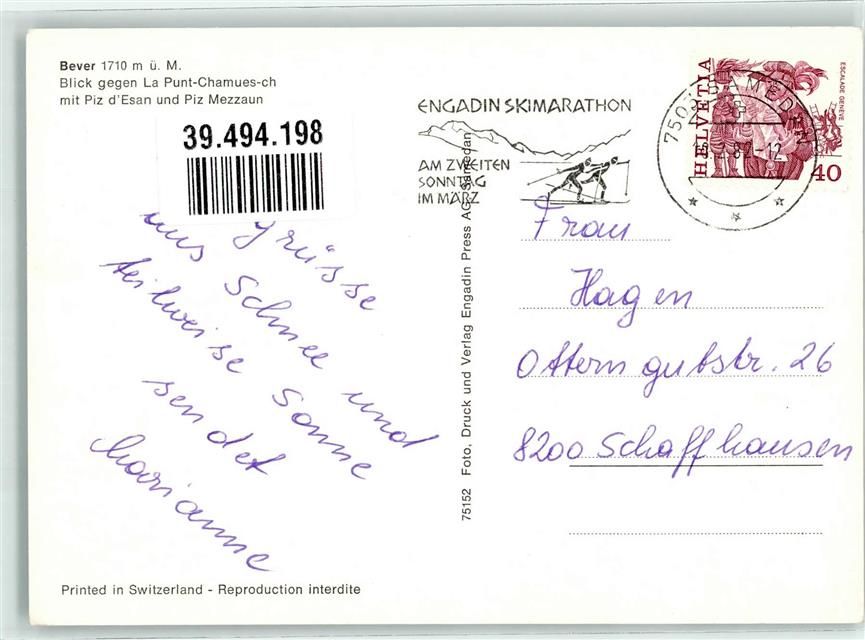 Bever 1710 m ü. M.
Blick gegen La Punt-Chamues-ch
mit Piz d'Esan und Piz Mezzaun
39.494.198
grüsse
aus Schnee und
teilweise Sonne
sendet
Marianne
Printed in Switzerland - Reproduction interdite
75152 Foto, Druck und Verlag Engadin Press AG, Samedan
ENGADIN SKIMARATHON
AM ZWEITEN
SONNTAG
IM MÄRZ
7503 SAMEDAN
HELVETIA
ESCALADE GENÈVE
40
Frau
Hagen
Otterngutstr. 26
8200 Schaffhausen